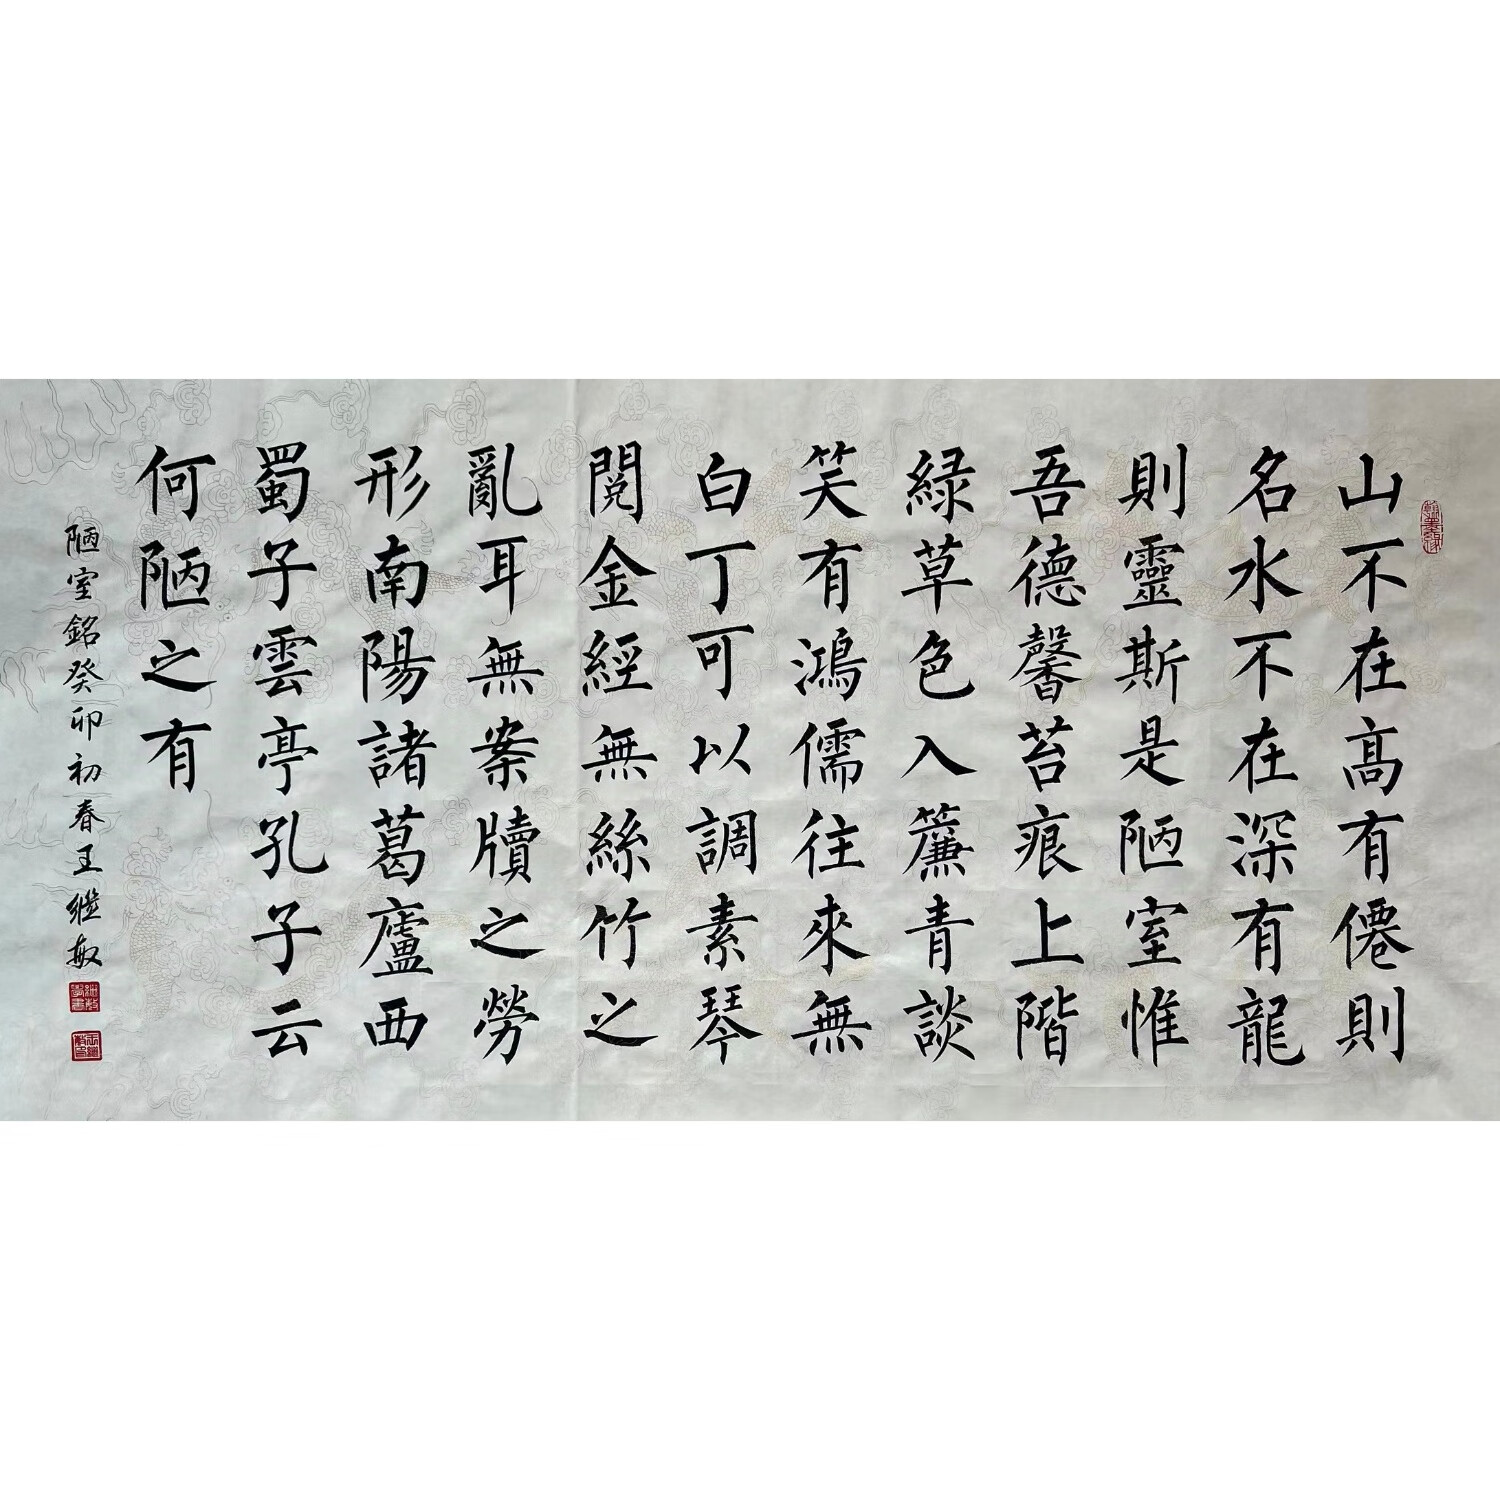 山不在高有僊則
名水不在深有龍
則靈斯是陋室惟
吾德馨苔痕上階
緑草色入簾青談
笑有鴻儒往來無
白丁可以調素琴
閲金經無絲竹之
亂耳無案牘之勞
形南陽諸葛廬西
蜀子雲亭孔子云
何陋之有
陋室銘癸卯初春王繼敏